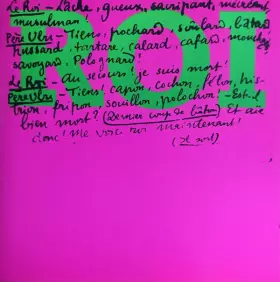 Le Roi – Lâche, gueux, sacripant, mécréant,
musulman!
Père Ubu – Tiens, pochard, soûlard, bâtard,
hussard, tartare, calard, cafard, mouchard,
savoyard, Polognard!
Le Roi – Au secours! je suis mort!
Père Ubu – Tiens! capon, cochon, félon, his-
trion, fripon, souillon, polochon! – Est-il
bien mort? (Dernier coup de bâton) Et aïe
donc! Me voici roi maintenant!
(Il sort)